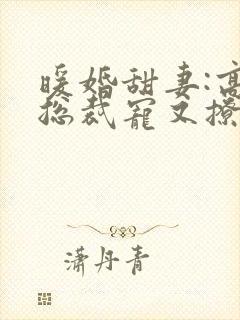 暖婚甜妻:高
总裁宠又撩
潇丹青